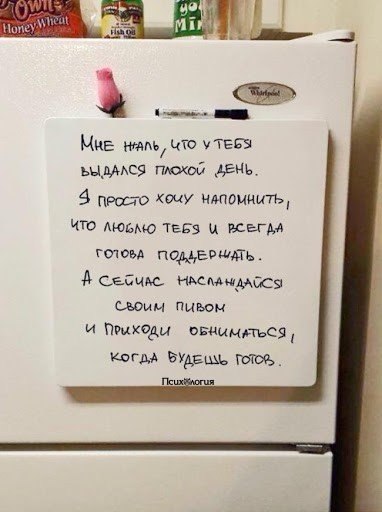 Own
HoneyWheat
Fish Oil
you
Mi
Whirlpool
Мне жаль, что у тебя
выдался плохой день.
Я просто хочу напомнить,
что люблю тебя и всегда
готова поддержать.
А сейчас наслаждайся
своим пивом
и приходи обниматься,
когда будешь готов.
Психология